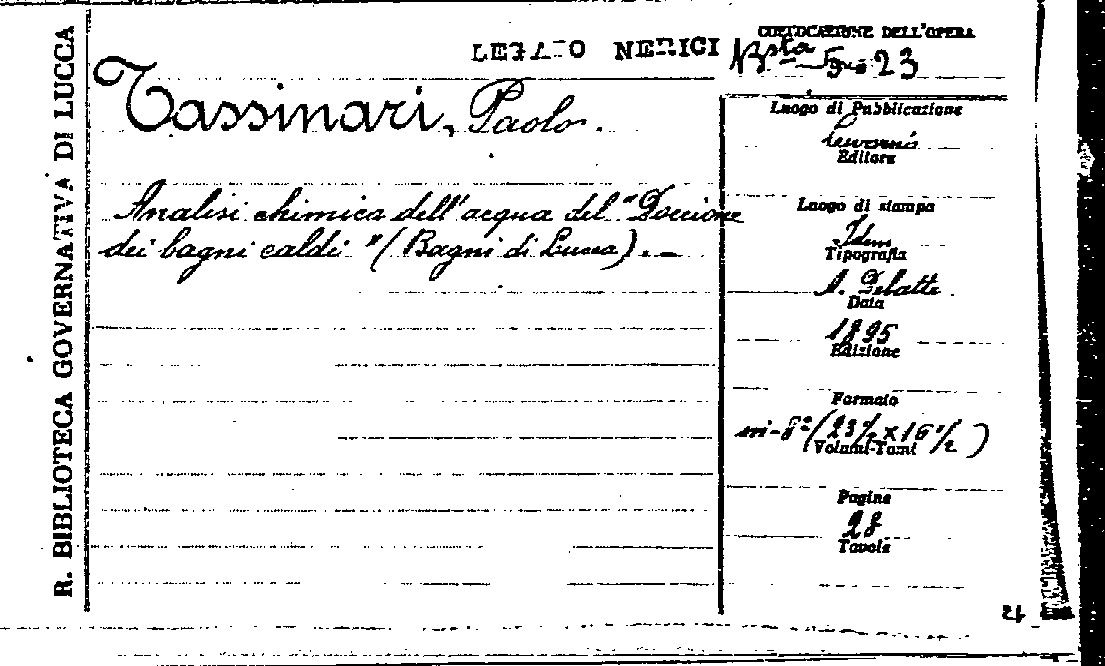 R. BIBLIOTECA GOVERNATIVA DI LUCCA
COLLOCAZIONE DELL'OPERA
NERICI Bsta 23
Tassinari, Paolo.
Analisi chimica dell'acqua del "Doccione
dei bagni caldi" (Bagni di Lucca). —
Luogo di Pubblicazione
Editore
Luogo di stampa
Idem
Tipografia
A. Debatte
Data
1895
Edizione
Formato
in-8º (23½ x 16½)
Volumi-Tomi
Pagine
28
Tavole